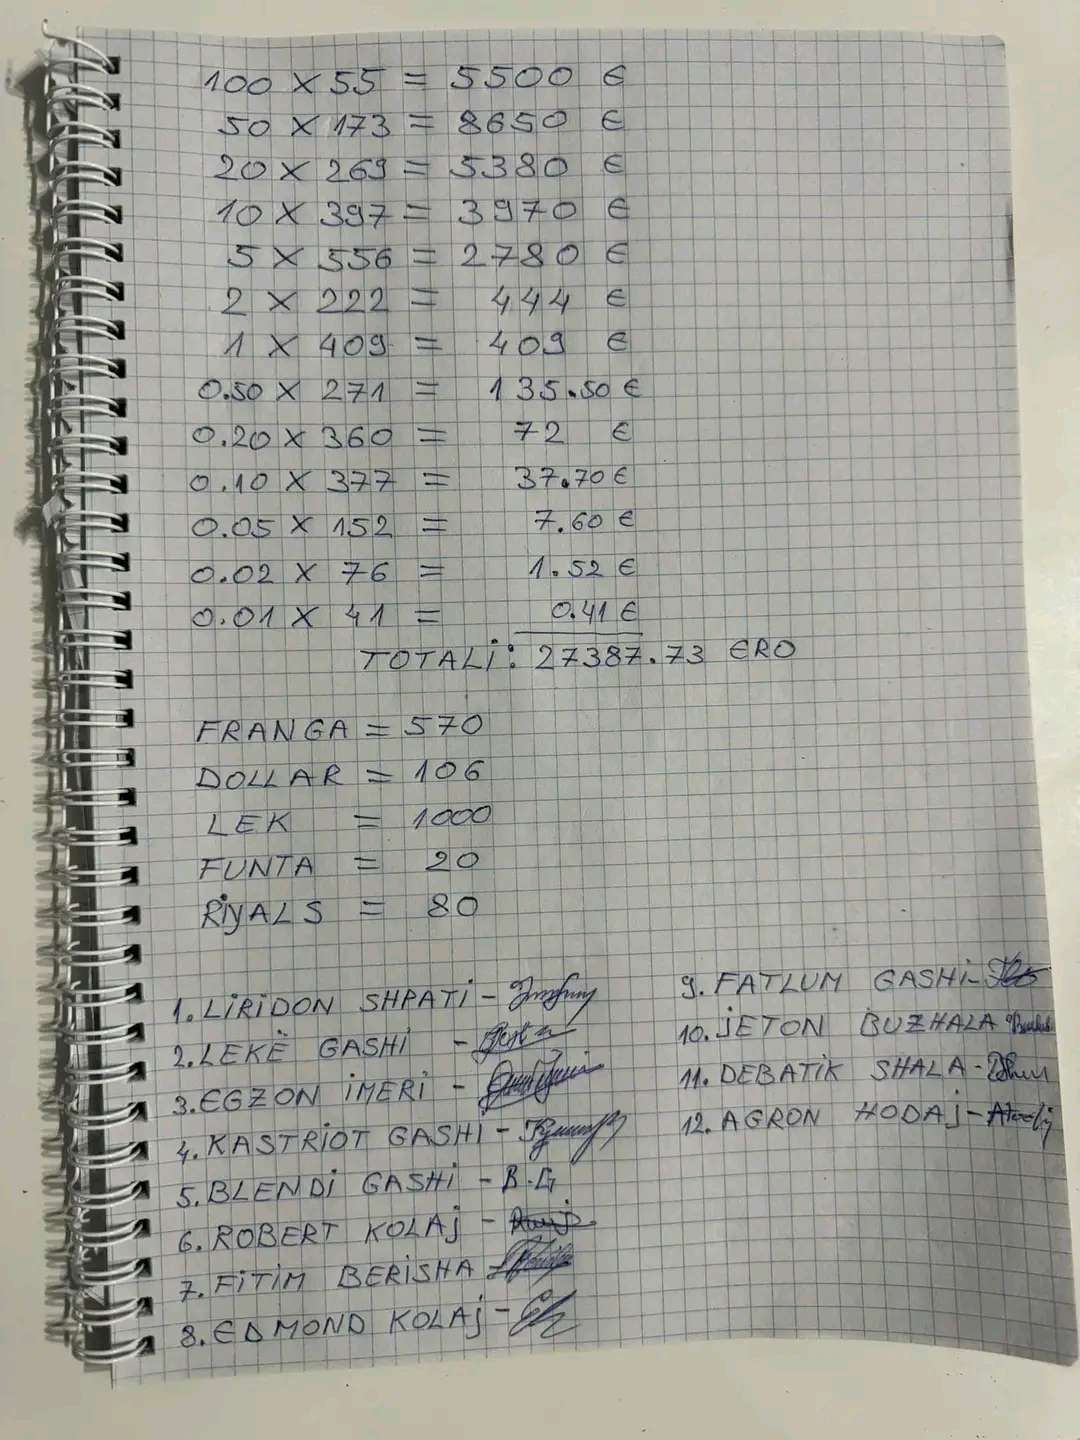 100 X 55 = 5500 €
50 X 173 = 8650 €
20 X 269 = 5380 €
10 X 397 = 3970 €
5 X 556 = 2780 €
2 X 222 = 444 €
1 X 409 = 409 €
0.50 X 271 = 135.50 €
0.20 X 360 = 72 €
0.10 X 377 = 37.70 €
0.05 X 152 = 7.60 €
0.02 X 76 = 1.52 €
0.01 X 41 = 0.41 €
TOTALI: 27387.73 ERO
FRANGA = 570
DOLLAR = 106
LEK = 1000
FUNTA = 20
RIYALS = 80
1. LIRIDON SHPATI -
2. LEKË GASHI -
3. EGZON IMERI -
4. KASTRIOT GASHI -
5. BLENDI GASHI - B.G
6. ROBERT KOLAJ -
7. FITIM BERISHA
8. EDMOND KOLAJ -
9. FATLUM GASHI -
10. JETON BUZHALA
11. DEBATIK SHALA -
12. AGRON HODAJ -